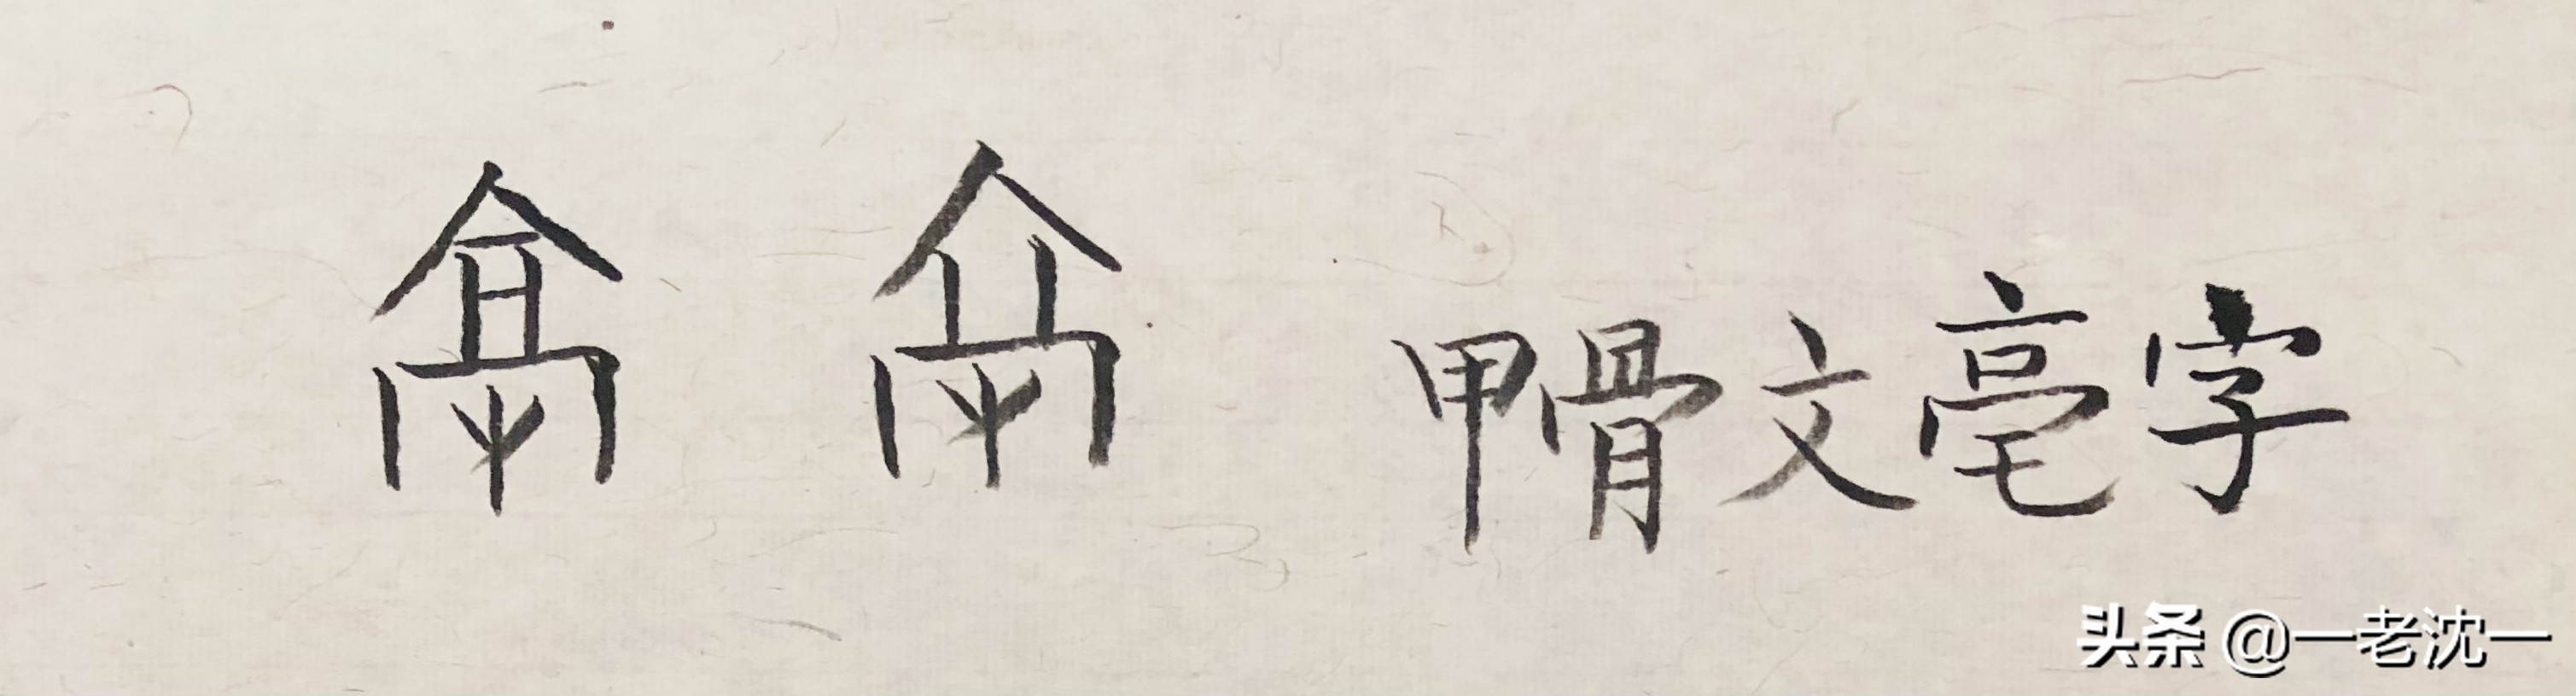 甲骨文亳字
头条 @一老沈一